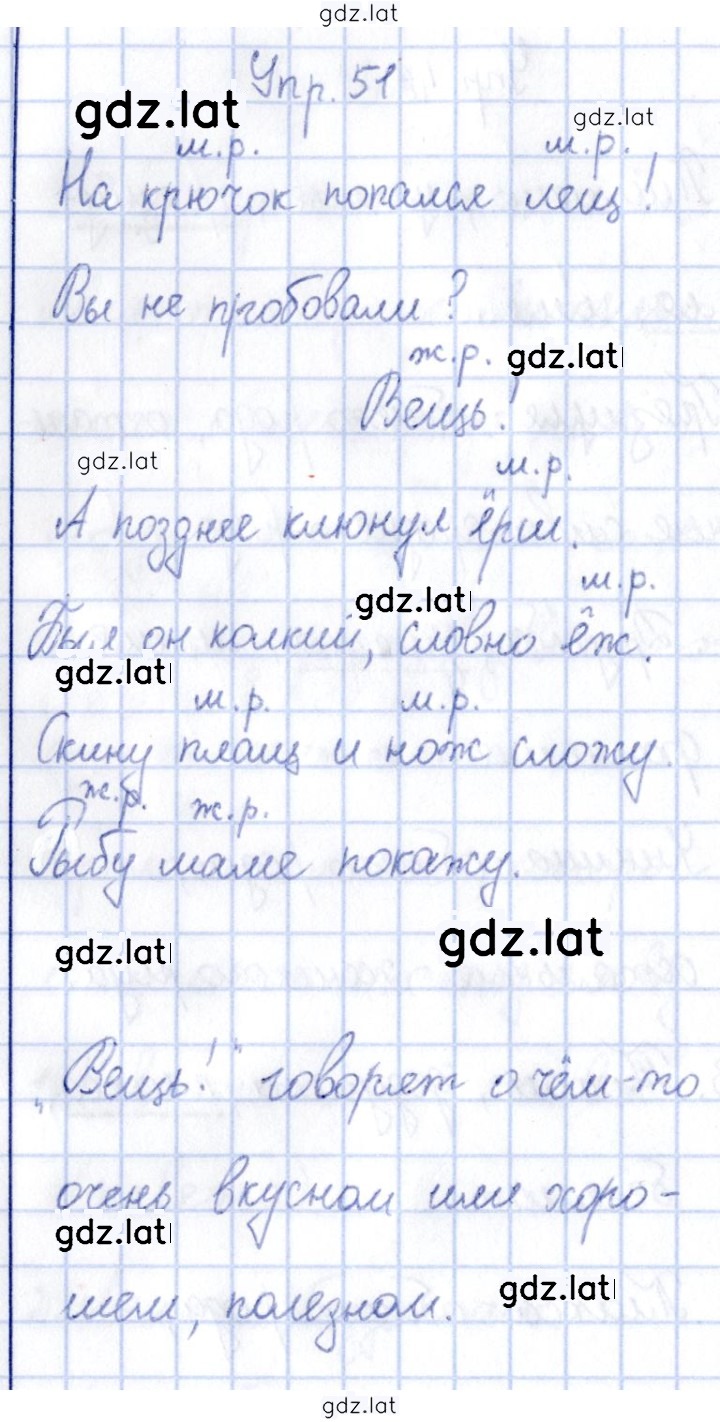 gdz.lat
Упр. 51
gdz.lat
gdz.lat
м.р. м.р.
На крючок попался лещ!
Вы не пробовали?
ж.р. gdz.lat
Вещь!
gdz.lat
м.р.
А позднее клюнул ёрш.
м.р.
gdz.lat
Был он колкий, словно ёж.
gdz.lat
м.р. м.р.
Скину плащ и нож сложу.
ж.р. ж.р.
Рыбу маме покажу.
gdz.lat
gdz.lat
„Вещь!" говорят о чём-то
очень вкусном или хоро-
gdz.lat
gdz.lat
шем, полезном.
gdz.lat